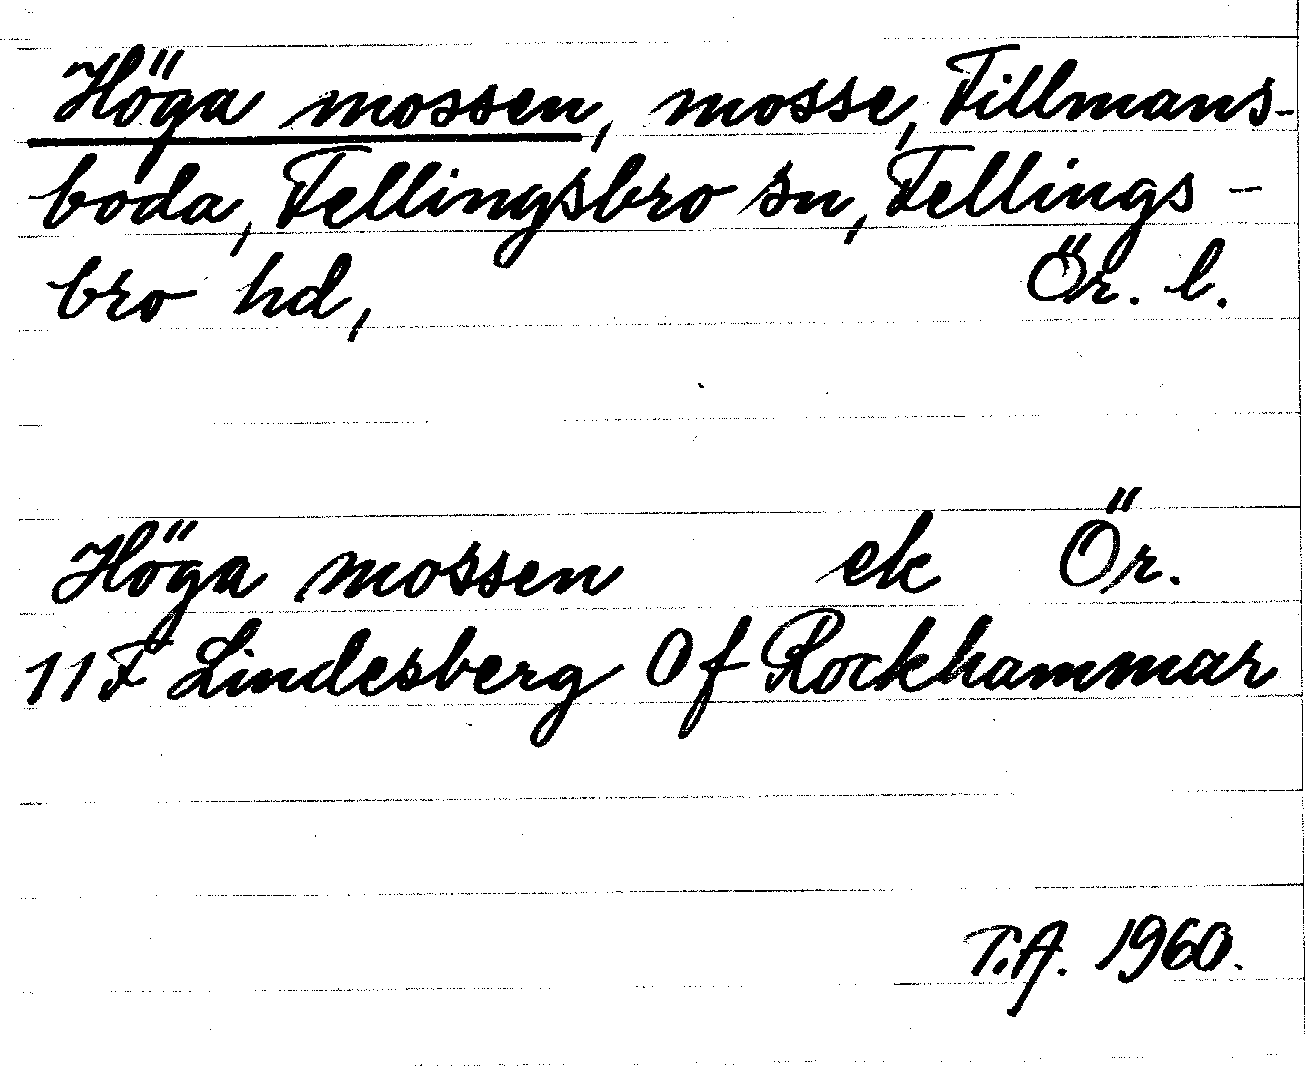 Höga mossen, mosse, Tillmans-
boda, Fellingsbro sn, Fellings-
bro hd, Ör. l.
Höga mossen ek Ör.
11 F Lindesberg 0 f Rockhammar
T.A. 1960.